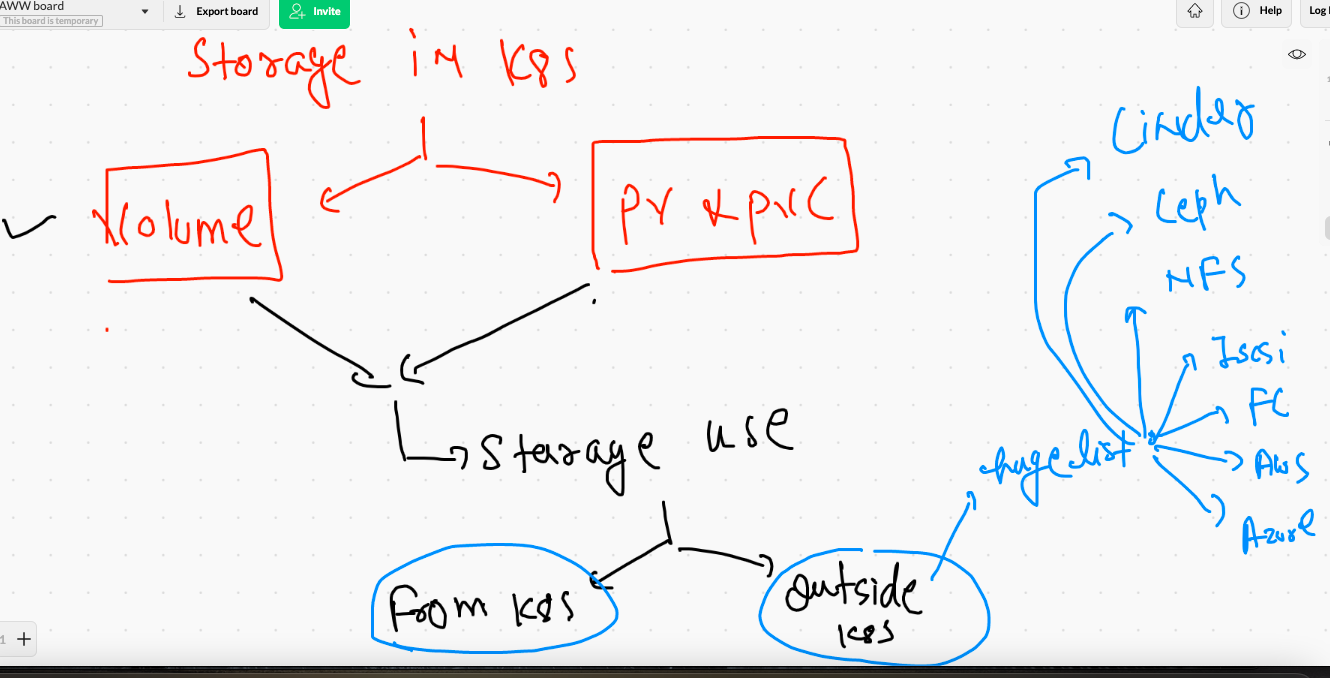 AWW board
This board is temporary
Export board
Invite
Help
Log
Storage in K8S
Volume
PV & PVC
Storage use
From K8S
Outside
K8S
huge list
Cinder
Ceph
NFS
Iscsi
FC
AWS
Azure
1 +